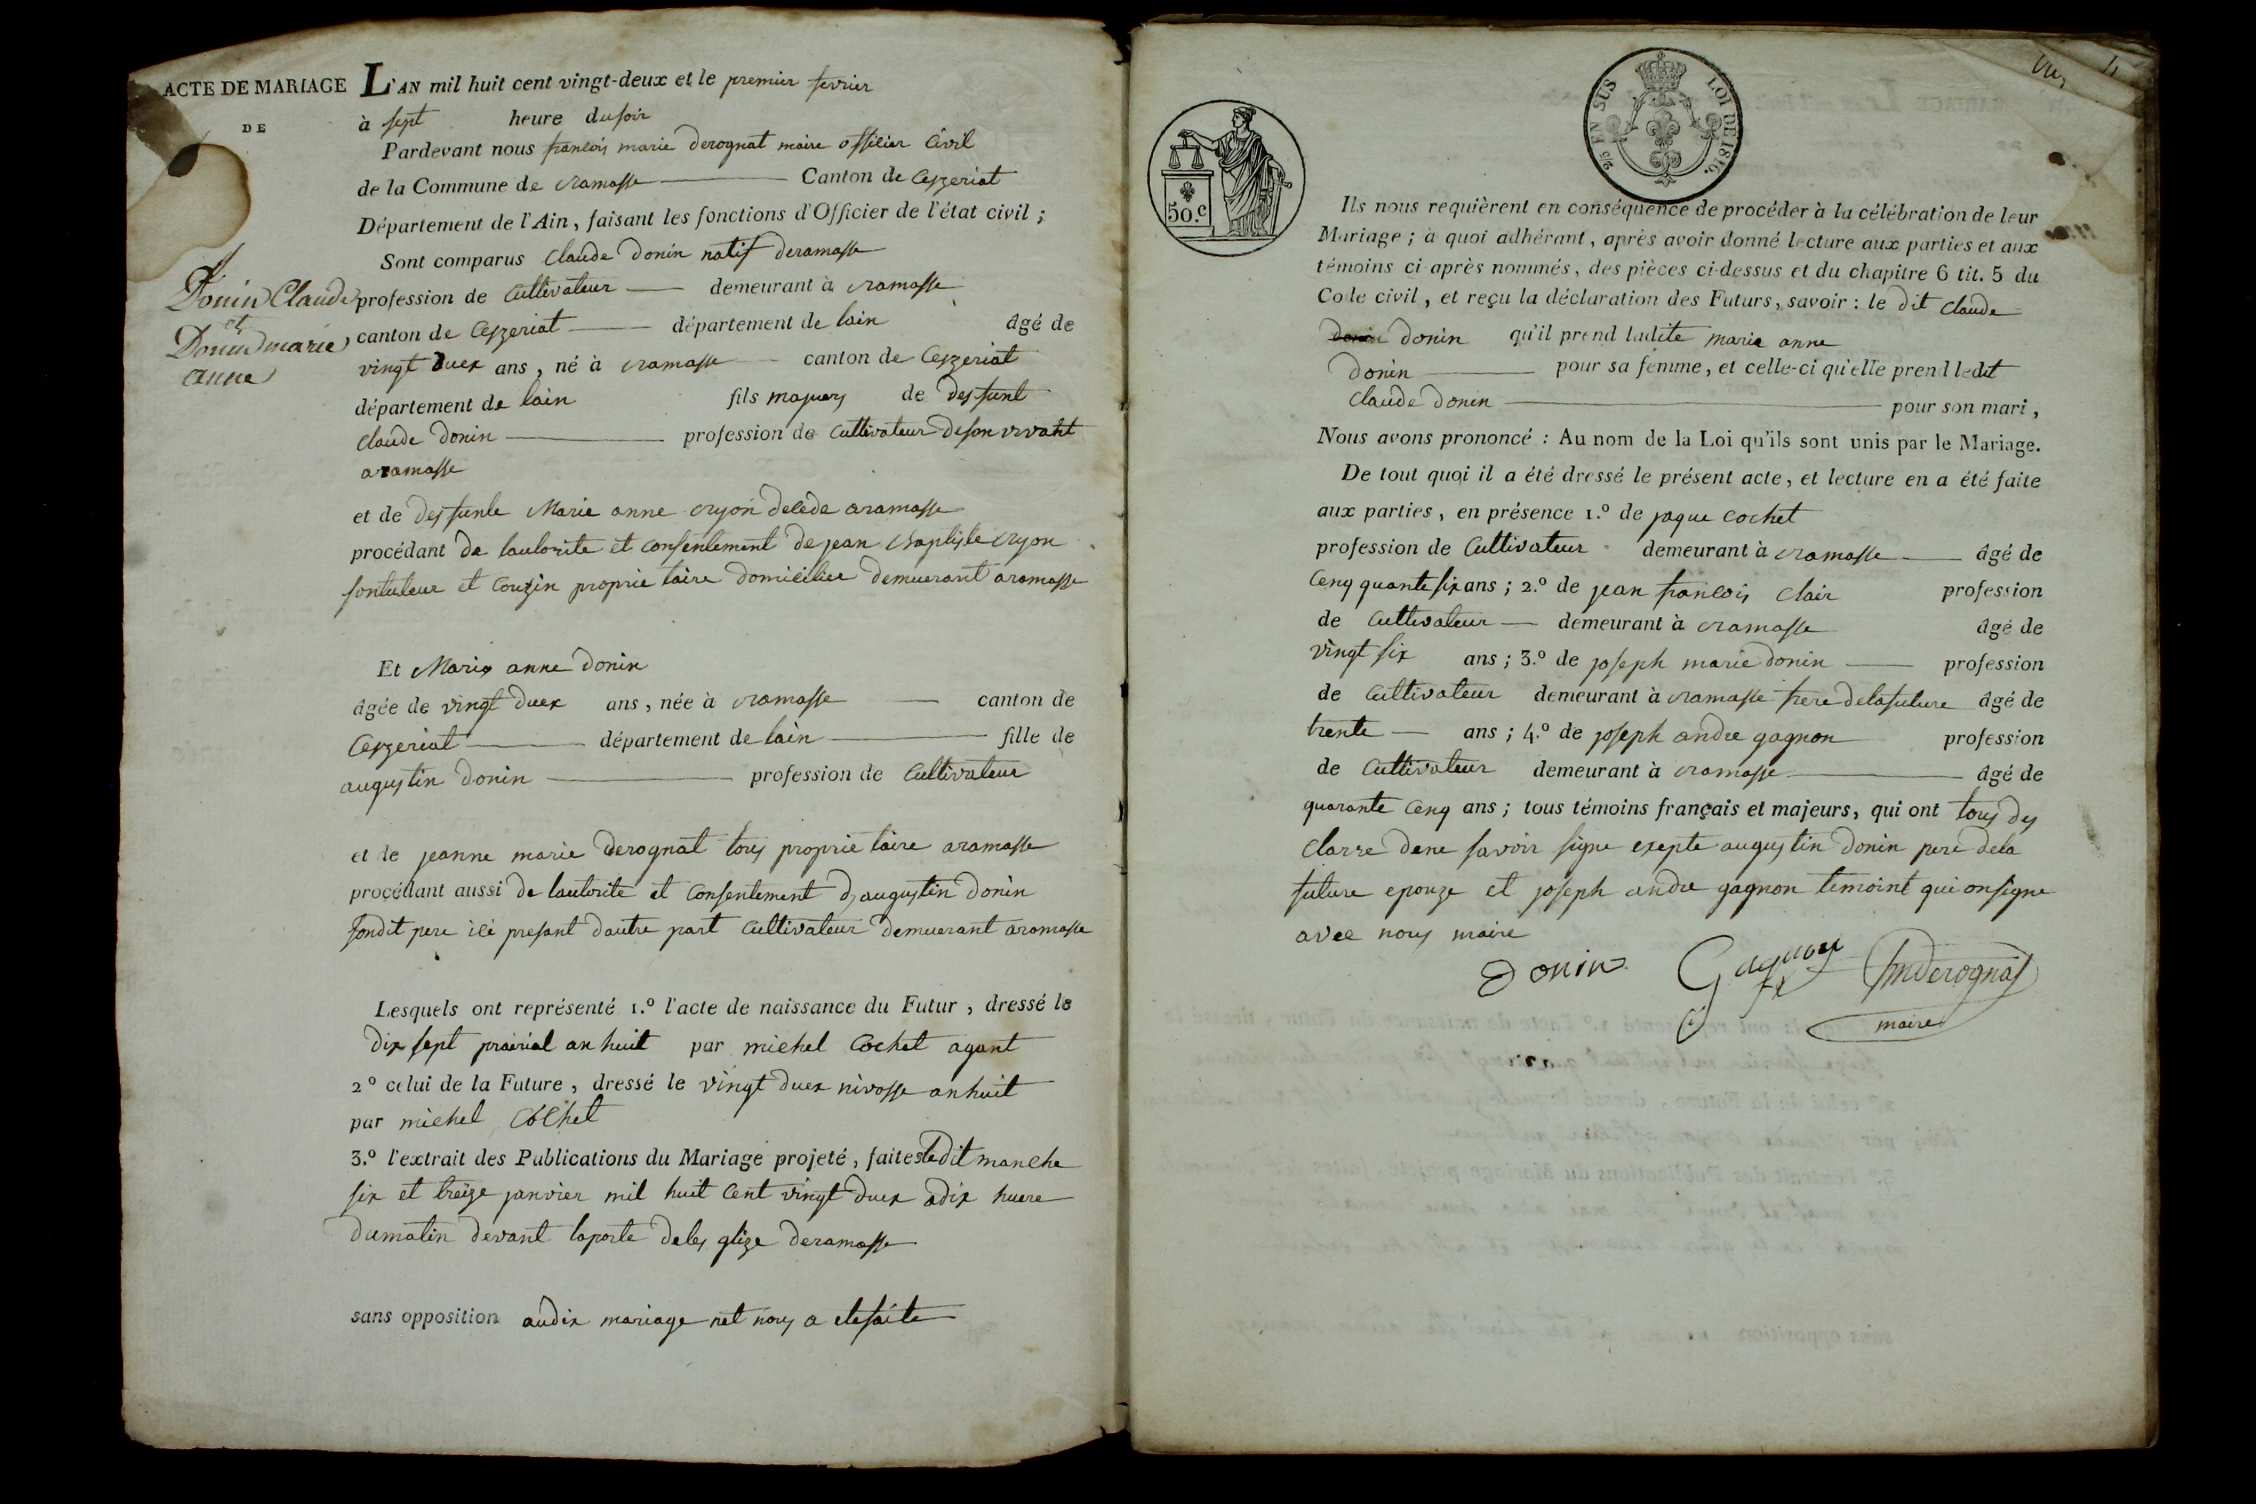 ACTE DE MARIAGE
DE
Donin Claude
et
Donin marie
anne
L'AN mil huit cent vingt-deux et le premier fevrier
à sept heure du soir
Pardevant nous francois marie derognat maire offecier Civil
de la Commune de ramasse Canton de Ceyzeriat
Département de l'Ain, faisant les fonctions d'Officier de l'état civil ;
Sont comparus Claude donin natif deramasse
profession de Cultivateur demeurant à ramasse
canton de Ceyzeriat département de lain âgé de
vingt duex ans, né à ramasse canton de Ceyzeriat
département de lain fils majuers de desfunt
claude donin profession de Cultivateur deson vivant
aramasse
et de desfunte Marie anne dede aramasse
procédant de lautorite et Consentement de jean Baptiste
sontuteur et Couzin proprietaire domicilier demuerant aramasse
Et Marie anne donin
âgée de vingt duex ans, née à ramasse canton de
Ceyzeriat département de lain fille de
augustin donin profession de Cultivateur
et de jeanne marie derognat tous proprietaire aramasse
procédant aussi de lautorite et Consentement d'augustin donin
sondit pere ici presant dautre part Cultivateur demuerant aramasse
Lesquels ont représenté 1.º l'acte de naissance du Futur, dressé le
dix sept prairial an huit par michel Cochet agant
2º celui de la Future, dressé le vingt duex nivosse anhuit
par michel Cochet
3.º l'extrait des Publications du Mariage projeté, faites ledit manche
six et treize janvier mil huit Cent vingt duex adix huere
dumatin devant laporte deles glize deramasse
sans opposition audix mariage net nous a etefaite
25 EN SUS
LOI DE 1816.
50.c
Ils nous requièrent en conséquence de procéder à la célébration de leur
Mariage ; à quoi adhérant, après avoir donné lecture aux parties et aux
témoins ci après nommés, des pièces ci-dessus et du chapitre 6 tit. 5 du
Code civil, et reçu la déclaration des Futurs, savoir : le dit Claude
donin donin qu'il prend ladite marie anne
donin pour sa femme, et celle-ci qu'elle prend ledit
Claude donin pour son mari,
Nous avons prononcé : Au nom de la Loi qu'ils sont unis par le Mariage.
De tout quoi il a été dressé le présent acte, et lecture en a été faite
aux parties, en présence 1.º de jaque Cochet
profession de Cultivateur demeurant à ramasse âgé de
Cenq quante six ans ; 2.º de jean francois Clair profession
de Cultivateur demeurant à ramasse âgé de
vingt six ans ; 3.º de joseph marie donin profession
de Cultivateur demeurant à ramasse frere delafuture âgé de
trente ans ; 4.º de joseph andre gagnon profession
de Cultivateur demeurant à ramasse âgé de
quarante Cenq ans ; tous témoins français et majeurs, qui ont tous des
Clarre dene savoir signe exepte augustin donin pere dela
future epouze et joseph andre gagnon temoint qui onsigne
avec nous maire
donin Gagnon fmderognat
maire